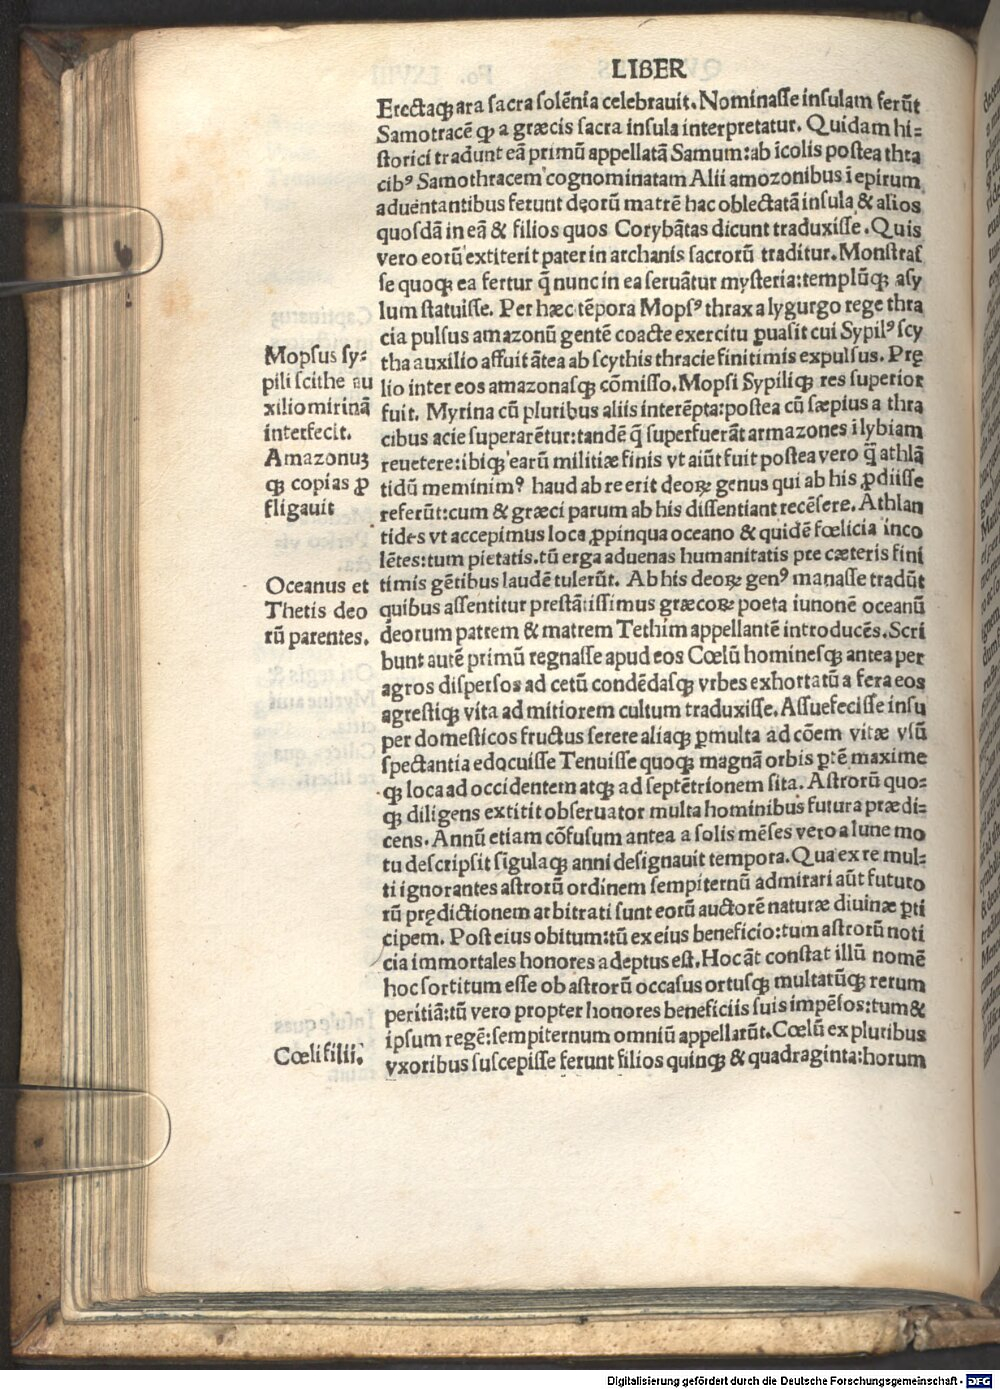 LIBER
Erectaqꝫ ara sacra solēnia celebrauit. Nominasse insulam ferūt
Samotracē ꝙ a græcis sacra insula interpretatur. Quidam hi-
storici tradunt eā primū appellatā Samum: ab īcolis postea thra
cibꝰ Samothracem cognominatam Alii amozonibus ī epirum
aduentantibus ferunt deorū matrē hac oblectatā insula & alios
quosdā in eā & filios quos Corybātas dicunt traduxisse. Quis
vero eorū extiterit pater in archanis sacrorū traditur. Monstras
se quoqꝫ ea fertur q̄ nunc in ea seruātur mysteria: templūqꝫ asy
lum statuisse. Per hæc tēpora Mopsꝰ thrax a lygurgo rege thra
cia pulsus amazonū gentē coacte exercitu ꝑuasit cui Sypilꝰ scy
tha auxilio affuit ātea ab scythis thracie finitimis expulsus. Prę
lio inter eos amazonasqꝫ cōmisso. Mopsi Sypiliqꝫ res superior
fuit. Myrina cū pluribus aliis interēpta: postea cū sæpius a thra
cibus acie superarētur: tandē q̄ superfuerāt armazones ī lybiam
reuetere: ibiqꝫ earū militiæ finis vt aiūt fuit postea vero q̄ athlā
tidū meminimꝰ haud ab re erit deoꝝ genus qui ab his ꝓdiisse
referūt: cum & græci parum ab his dissentiant recēsere. Athlan
tides vt accepimus loca ꝓpinqua oceano & quidē fœlicia inco
lētes: tum pietatis. tū erga aduenas humanitatis pre cæteris fini
timis gētibus laudē tulerūt. Ab his deoꝝ genꝰ manasse tradūt
quibus assentitur prestātissimus græcoꝝ poeta iunonē oceanū
deorum patrem & matrem Tethim appellantē introducēs. Scri
bunt autē primū regnasse apud eos Cœlū hominesqꝫ antea per
agros dispersos ad cetū condēdasqꝫ vrbes exhortatū a fera eos
agrestiqꝫ vita ad mitiorem cultum traduxisse. Assuefecisse insu
per domesticos fructus serere aliaqꝫ ꝑmulta ad cōem vitæ vsū
spectantia edocuisse Tenuisse quoqꝫ magnā orbis ꝑtē maxime
qꝫ loca ad occidentem atqꝫ ad septētrionem sita. Astrorū quo-
qꝫ diligens extitit obseruator multa hominibus futura prædi-
cens. Annū etiam cōfusum antea a solis mēses vero a lune mo
tu descripsit sigulaqꝫ anni designauit tempora. Qua ex re mul-
ti ignorantes astrorū ordinem sempiternū admirari aūt futuro
rū prędictionem arbitrati sunt eorū auctorē naturæ diuinæ ꝑti
cipem. Post eius obitum: tū ex eius beneficio: tum astrorū noti
cia immortales honores adeptus est. Hoc āt constat illū nomē
hoc sortitum esse ob astrorū occasus ortusqꝫ multatūqꝫ rerum
peritiā: tū vero propter honores beneficiis suis impēsos: tum &
ipsum regē: sempiternum omniū appellarūt. Cœlū ex pluribus
vxoribus suscepisse ferunt filios quinqꝫ & quadraginta: horum
Mopsus sy-
pili scithe au
xilio mirinā
interfecit.
Amazonuꝫ
qꝫ copias ꝓ
fligauit
Oceanus et
Thetis deo
rū parentes.
Cœli filii.
Digitalisierung gefördert durch die Deutsche Forschungsgemeinschaft - DFG